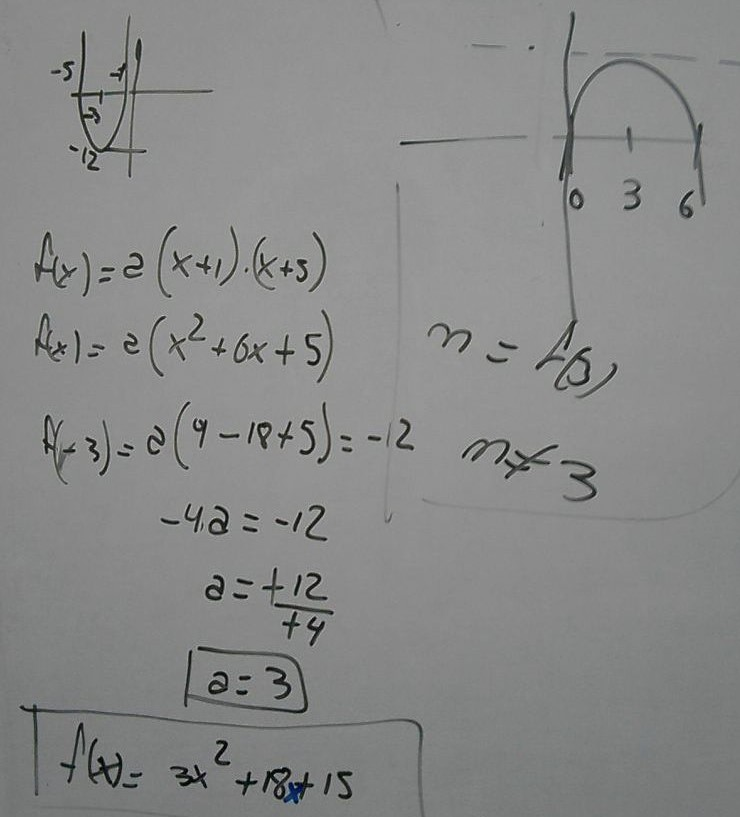 -5 -1
-3
-12
f(x) = a(x+1).(x+5)
f(x) = a(x²+6x+5)
f(-3) = a(9-18+5) = -12
-4a = -12
a = +12/+4
a = 3
f(x) = 3x²+18x+15
0 3 6
m = f(3)
m ≠ 3